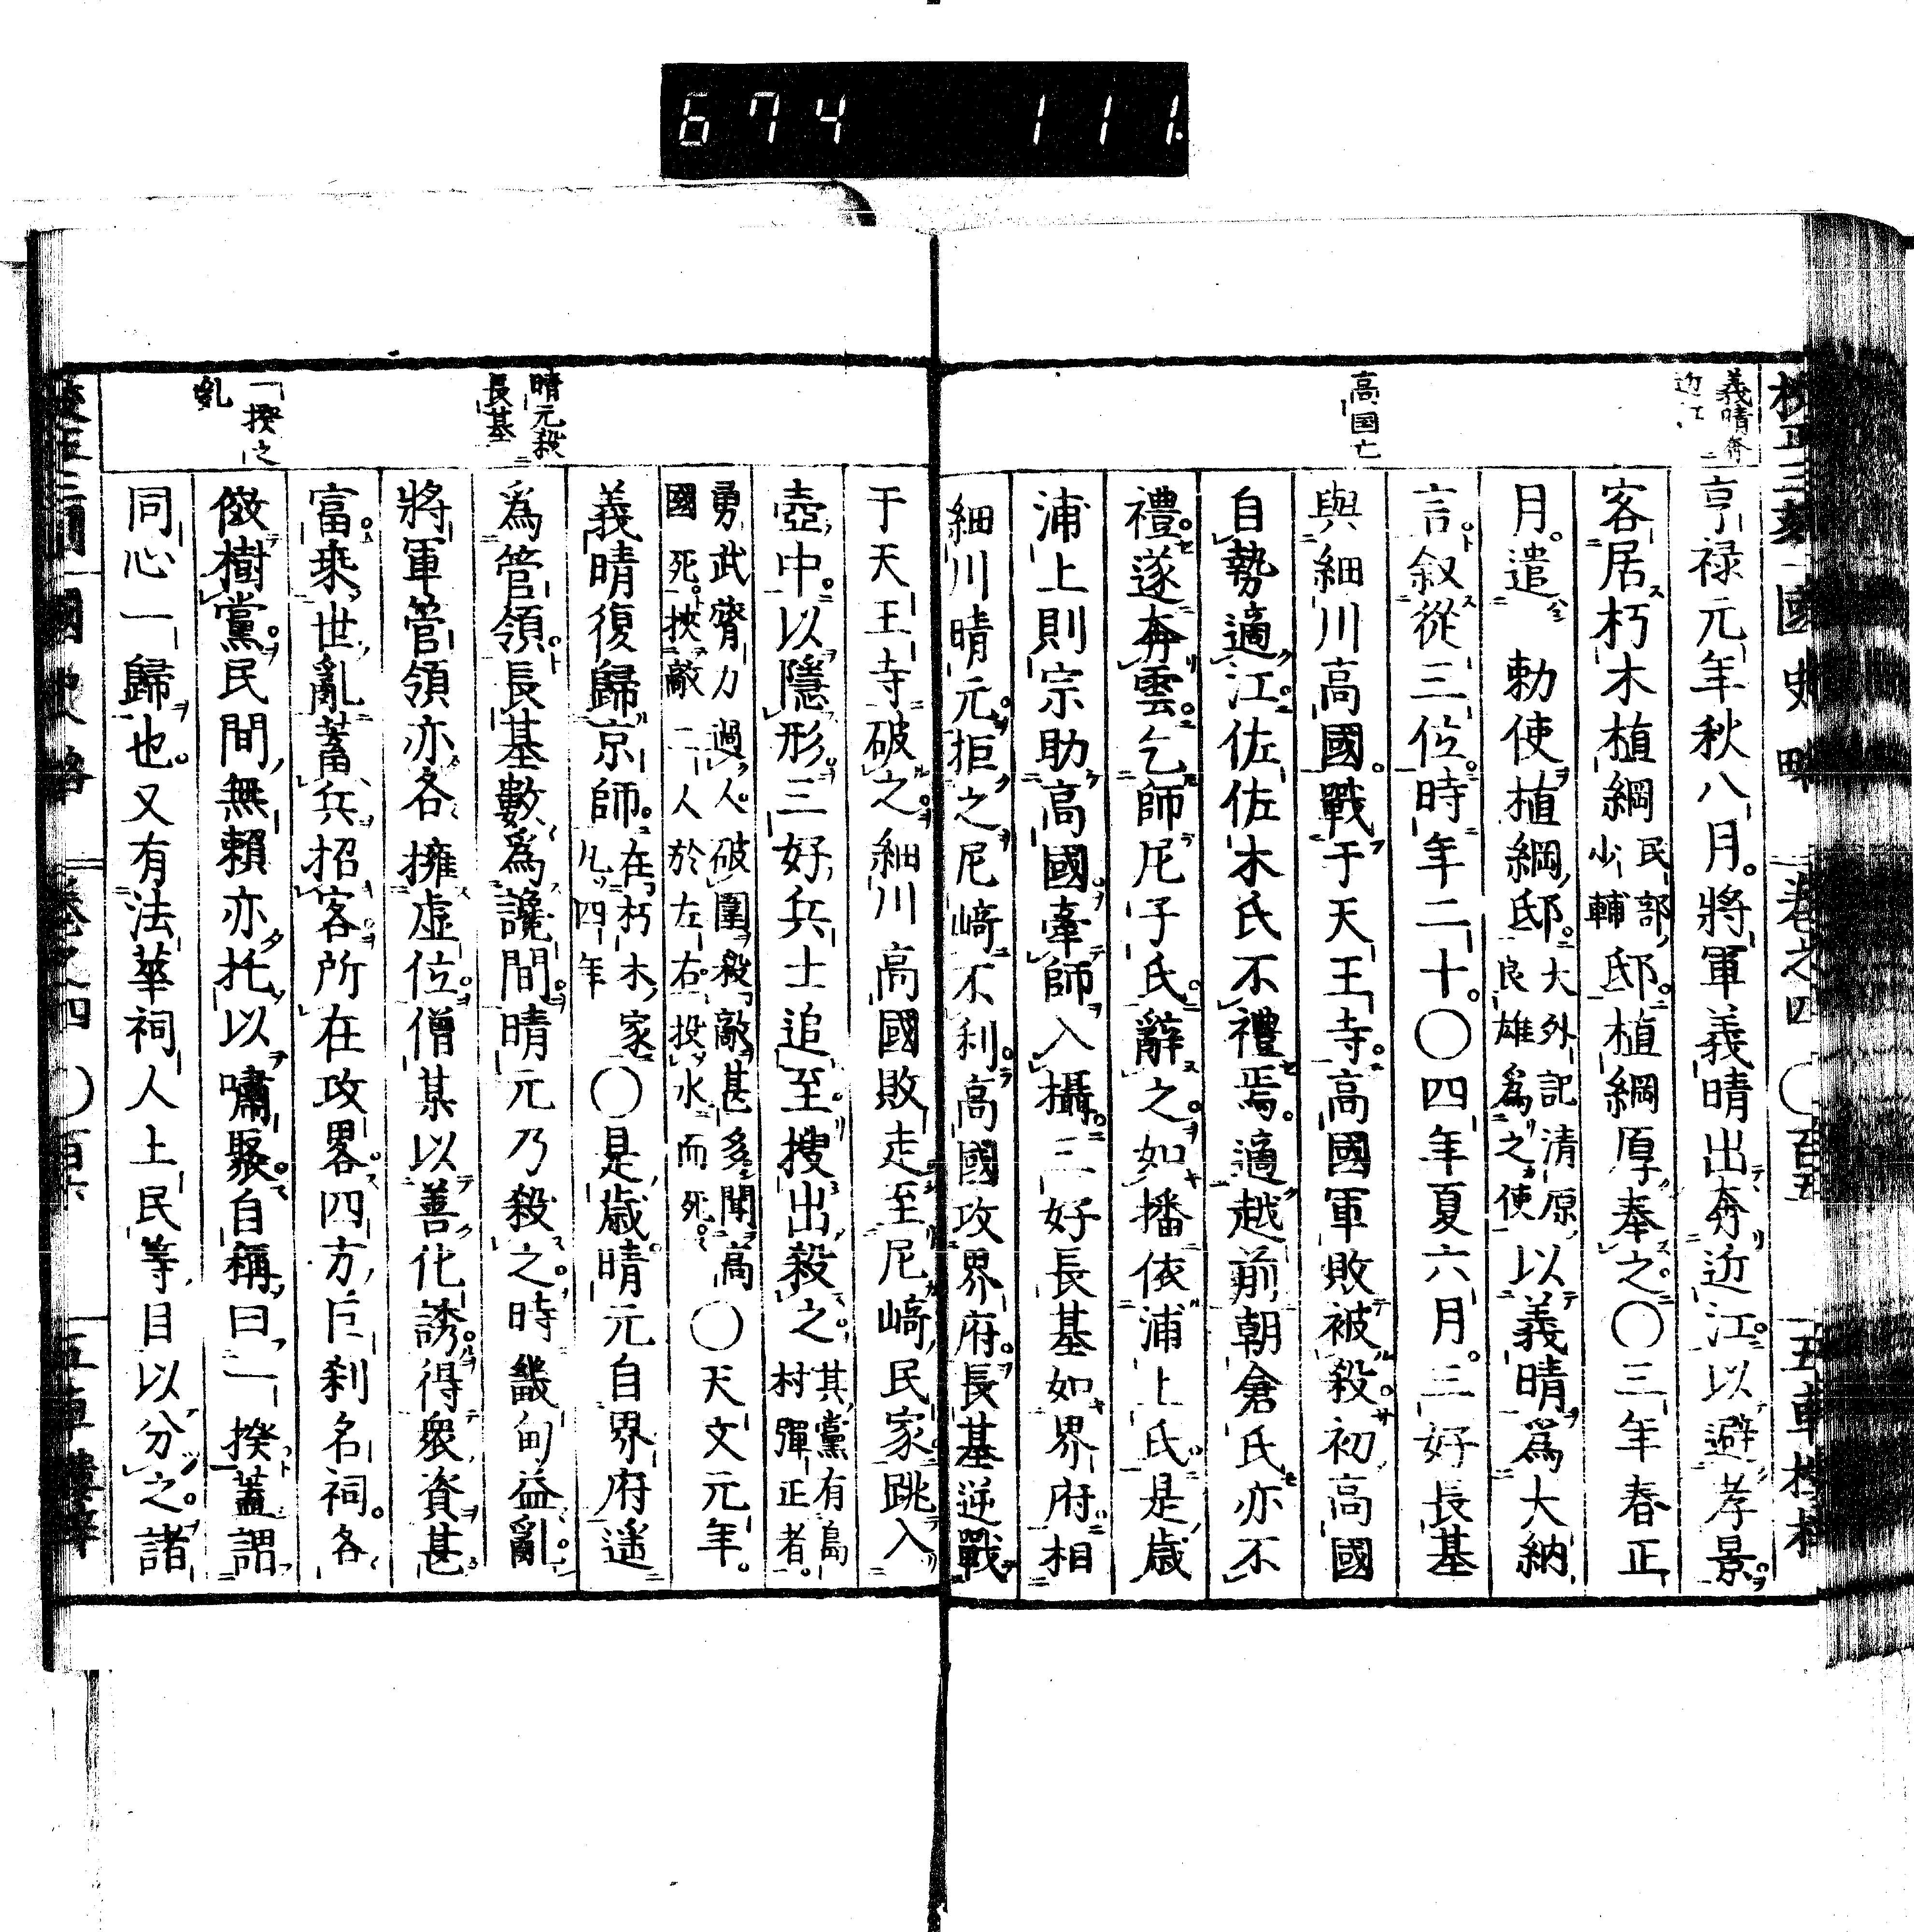 674 111
義晴奔
近江
亨禄元年秋八月將軍義晴出奔近江以避孝景
客居朽木植綱民部少輔邸植綱厚奉之〇三年春正
月遣 勅使植綱邸大外記清原良雄爲之使以義晴爲大納
言叙從三位時年二十〇四年夏六月三好長基
高国亡
與細川高國戰于天王寺高國軍敗被殺初高國
自勢適江佐佐木氏不禮焉適越前朝倉氏亦不
禮遂奔雲乞師尼子氏辭之如播依浦上氏是歳
浦上則宗助高國牽師入攝三好長基如界府相
細川晴元拒之尼﨑不利高國攻界府長基逆戰
于天王寺破之細川高國敗走至尼﨑民家跳入
壺中以隱形三好兵士追至搜出殺之其黨有島村彈正者
勇武膂力過人破圍殺敵甚多聞高國死挾敵二人於左右投水而死〇天文元年
義晴復歸京師在朽木家凡四年〇是歳晴元自界府遥
晴元殺
長基
爲管領長基數爲讒間晴元乃殺之時畿甸益亂
將軍管領亦各擁虚位僧某以善化誘得衆資甚
富乗世亂蓄兵招客所在攻畧四方巨刹名祠各
一揆之
乱
倣樹黨民間無賴亦托以嘯聚自稱曰一揆蓋謂
同心一歸也又有法華祠人上民等目以分之諸